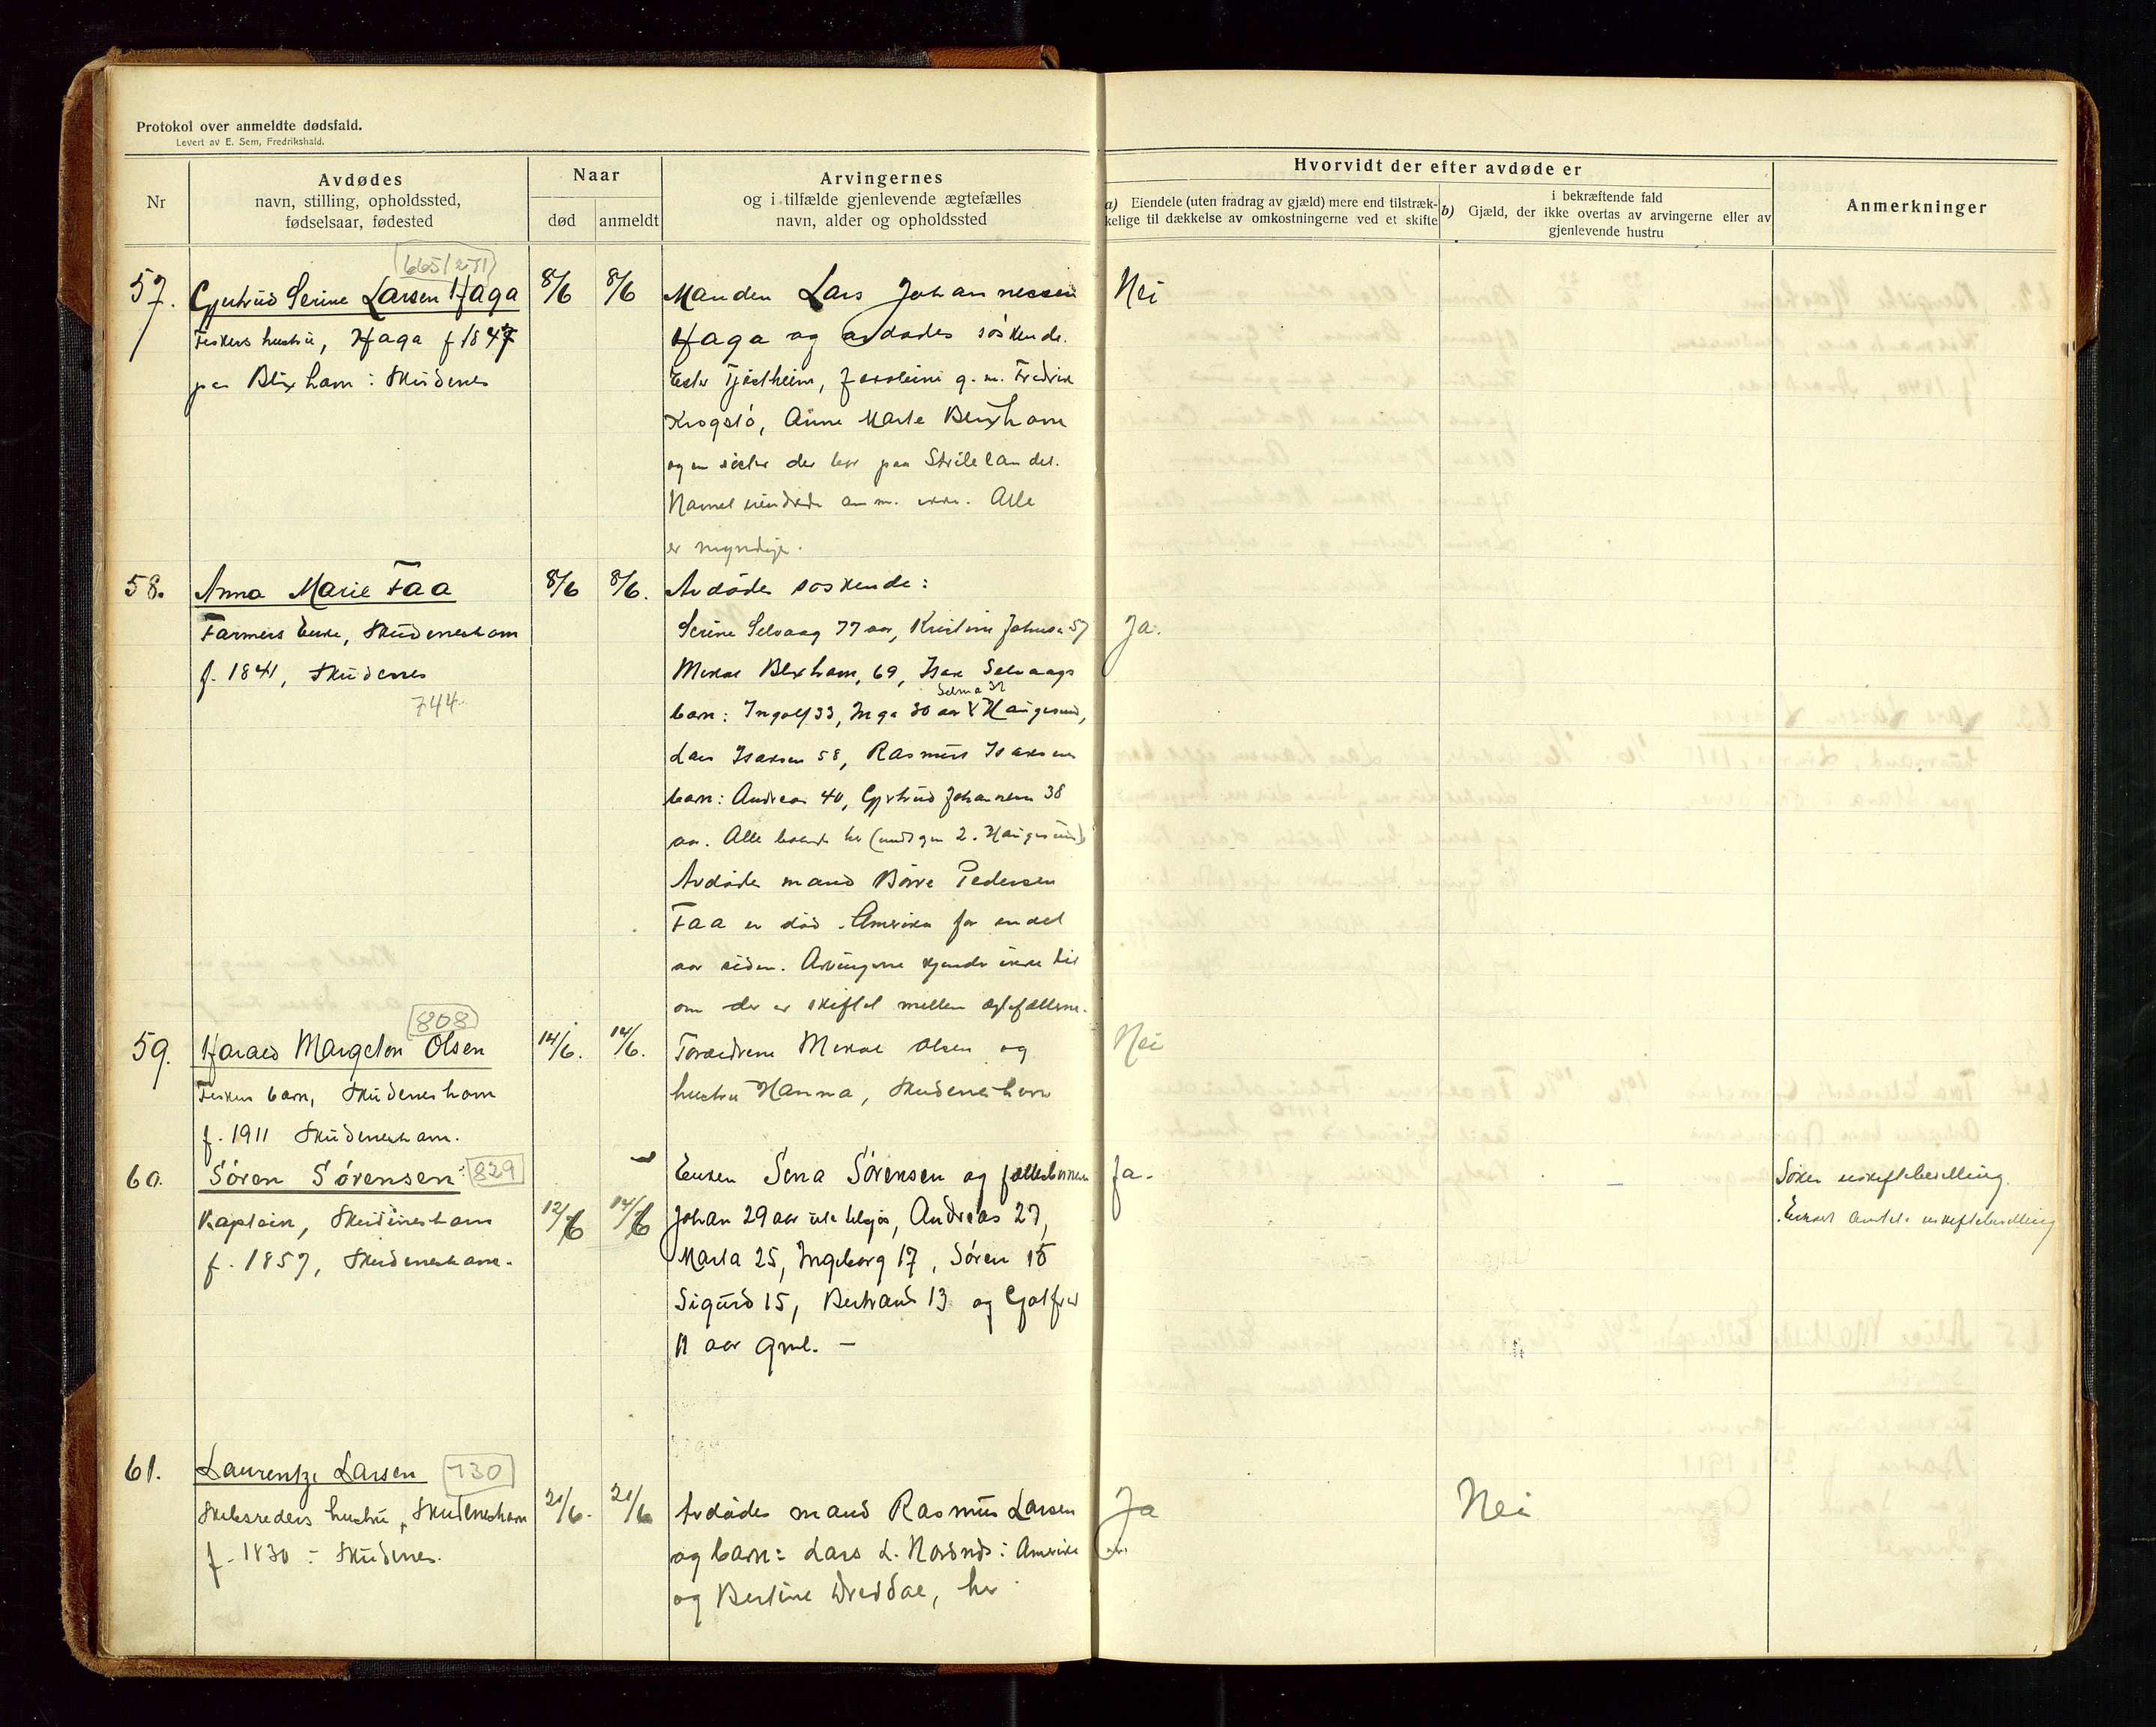 Protokol over anmeldte dødsfald.
Levert av E. Sem, Fredrikshald.
Nr
Avdødes
navn, stilling, opholdssted,
fødselsaar, fødested
Naar
død
anmeldt
Arvingernes
og i tilfælde gjenlevende ægtefælles
navn, alder og opholdssted
Hvorvidt der efter avdøde er
a) Eiendele (uten fradrag av gjæld) mere end tilstræk-
kelige til dækkelse av omkostningerne ved et skifte
b) i bekræftende fald
Gjæld, der ikke overtas av arvingerne eller av
gjenlevende hustru
Anmerkninger
57.
665/271
Gjertrud Serine Larsen Haga
Fiskers hustru, Haga f 1847
paa Blixhavn i Skudenes
8/6
8/6
Manden Lars Johannessen
Haga og avdødes søskende.
Ester Tjøstheim, g. m. Fredrik
Krogstø, Anne Marte Blixhavn
og en søster der bor paa Strilelandet.
Navnet anm. ikke. Alle
er myndige.
Nei
58.
Anna Marie Faa
Farmers Enke, Skudeneshavn
f. 1841, Skudenes
744
8/6
8/6.
Avdødes søskende:
Serine Selvaag 77 aar, Kristine Johnsen 57
Mikal Blixhavn, 69, Isak Selvaags
Selma 32
barn: Ingolf 33, Inga 30 aar Haugesund,
Lars Isaksen 58, Rasmus Isaksens
barn: Andreas 40, Gjertrud Johannesen 38
aar. Alle boende her (undtagen 2. Haugesund)
Avdødes mand Børre Pedersen
Faa er død i Amerika for endel
aar siden. Arvingerne kjender ikke til
om der er skiftet mellem ægtefællerne.
Ja.
59.
808
Harald Margeton Olsen
Fiskers barn, Skudeneshavn
f. 1911 Skudeneshavn.
14/6.
14/6.
Forældrene Mikal Olsen og
hustru Hanna, Skudeneshavn
Nei
60.
Søren Sørensen
829
Kaptein, Skudeneshavn
f. 1857, Skudeneshavn.
12/6
14/6
Enken Sena Sørensen og fællesbørnene
Johan 29 aar ute tilsjøs, Andreas 27,
Marta 25, Ingeborg 17, Søren 18
Sigurd 15, Bertrand 13 og Gotfred
11 aar gml. —
Ja.
Søker uskiftebevilling.
Erholdt Amtets uskiftebevilling
61.
Laurentze Larsen
730
Skibsreders hustru, Skudeneshavn
f. 1830 i Skudenes.
21/6.
21/6
Avdødes mand Rasmus Larsen
og barn: Lars L. i Amerika
og Bertine Dreddal, her
Ja
Nei